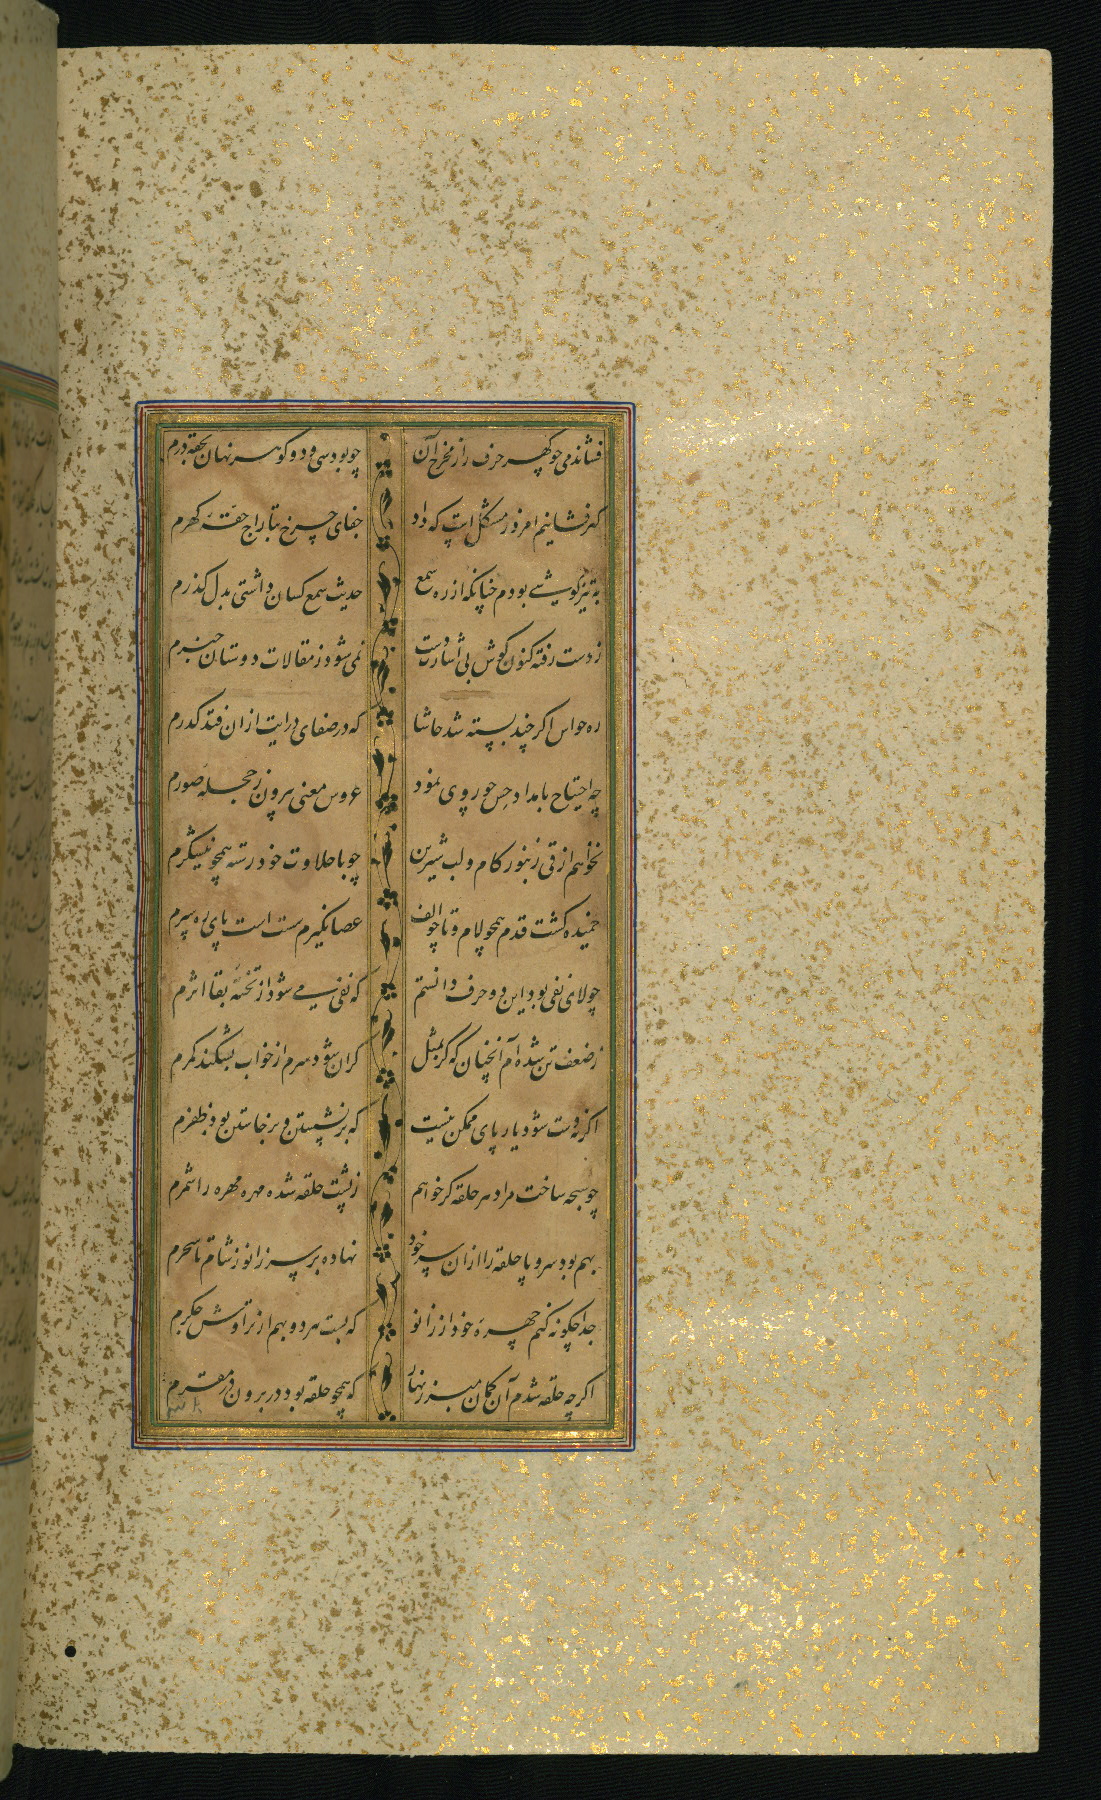 فشاندمی چو گهر حرف را ز مخرج آن چو بود سی و دو گوهر نهان بحقه درم
گهرفشانیم امروز مشکل است که داد جفای چرخ بتاراج حقه گهرم
به تیزگوشی بودم چنانکه از ره سمع حدیث سمع کسان داشتی بدل گذرم
ز دست رفته کنون گوش بی اشارت دست نمی‌شود ز مقالات دوستان خبرم
ره حواس اگر چند بسته شد حاشا که در صفای درایت از ان فتد کدرم
چه احتیاج بامداد حس چو روی نمود عروس معنی بیرون ز حجله صورم
نخواهم از قی زنبور کام و لب شیرین چو با حلاوت خود رسته همچو نیشکرم
خمیده گشت قدم همچو لام و تا چو الف عصا نگیرم سست است پای ره سپرم
چو لای نفی بود این دو حرف دانستم که نفی می شود از تخته بقا اثرم
ز ضعف تن شده‌ام آنچنان که گر بمثل گران شود سرم از خواب بشکند کمرم
اگر نه دست شود یار پای ممکن نیست که بر نشستن و برخاستن بود ظفرم
چو سبحه ساخت مرا دهر حلقه گر خواهم ز پشت حلقه شده مهره مهره را شمرم
بهم بود سر و پا حلقه را از ان سر خود نهاده بر سر زانو ز شام تا سحرم
جدا چگونه کنم چهره خود از زانو که بست هر دو بهم از تراوش جگرم
اگر چه حلقه شدم آن گمان مبر زنهار که همچو حلقه بود در برون در مقرم